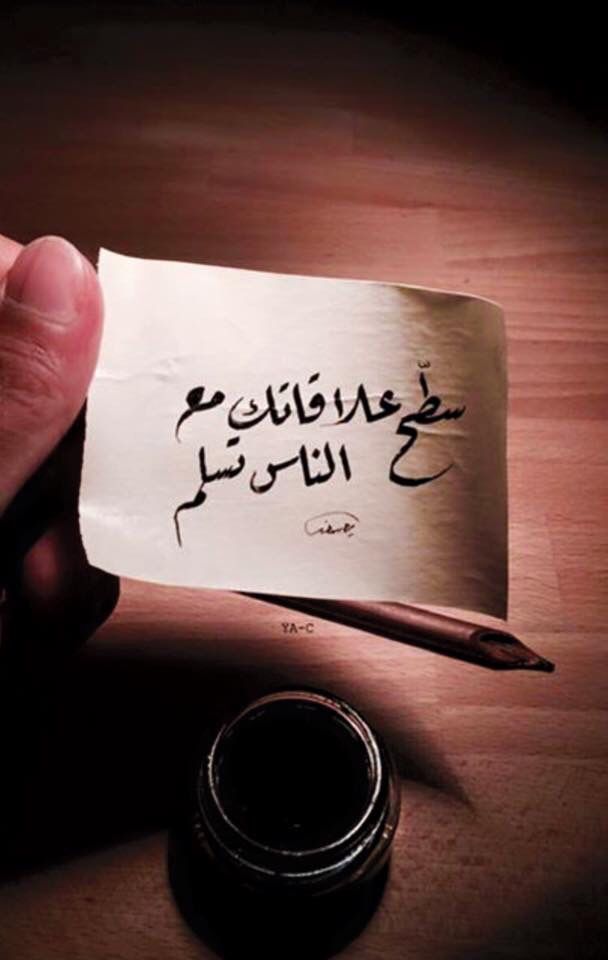 سطّح علاقاتك مع
الناس تسلم
يوسف
YA-C